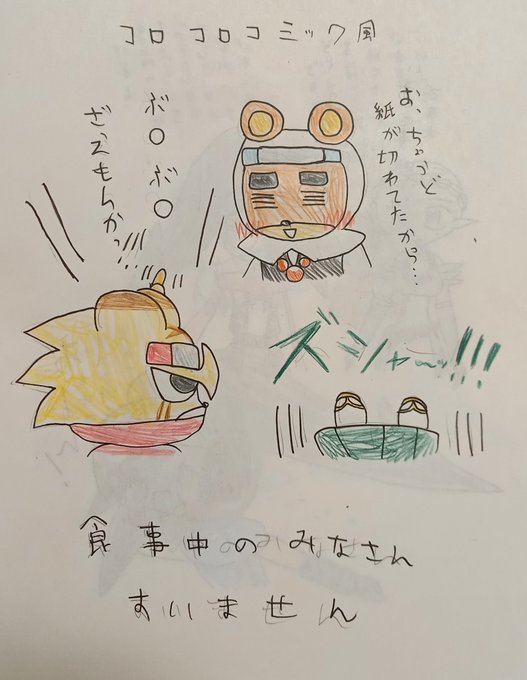 コロコロコミック風
お、ちょうど
紙が切れてたから…
ぶ〇ぶ〇
ざえもんかっ!!!
ズシャ〜ッ!!!
食事中のみなさん
すいません